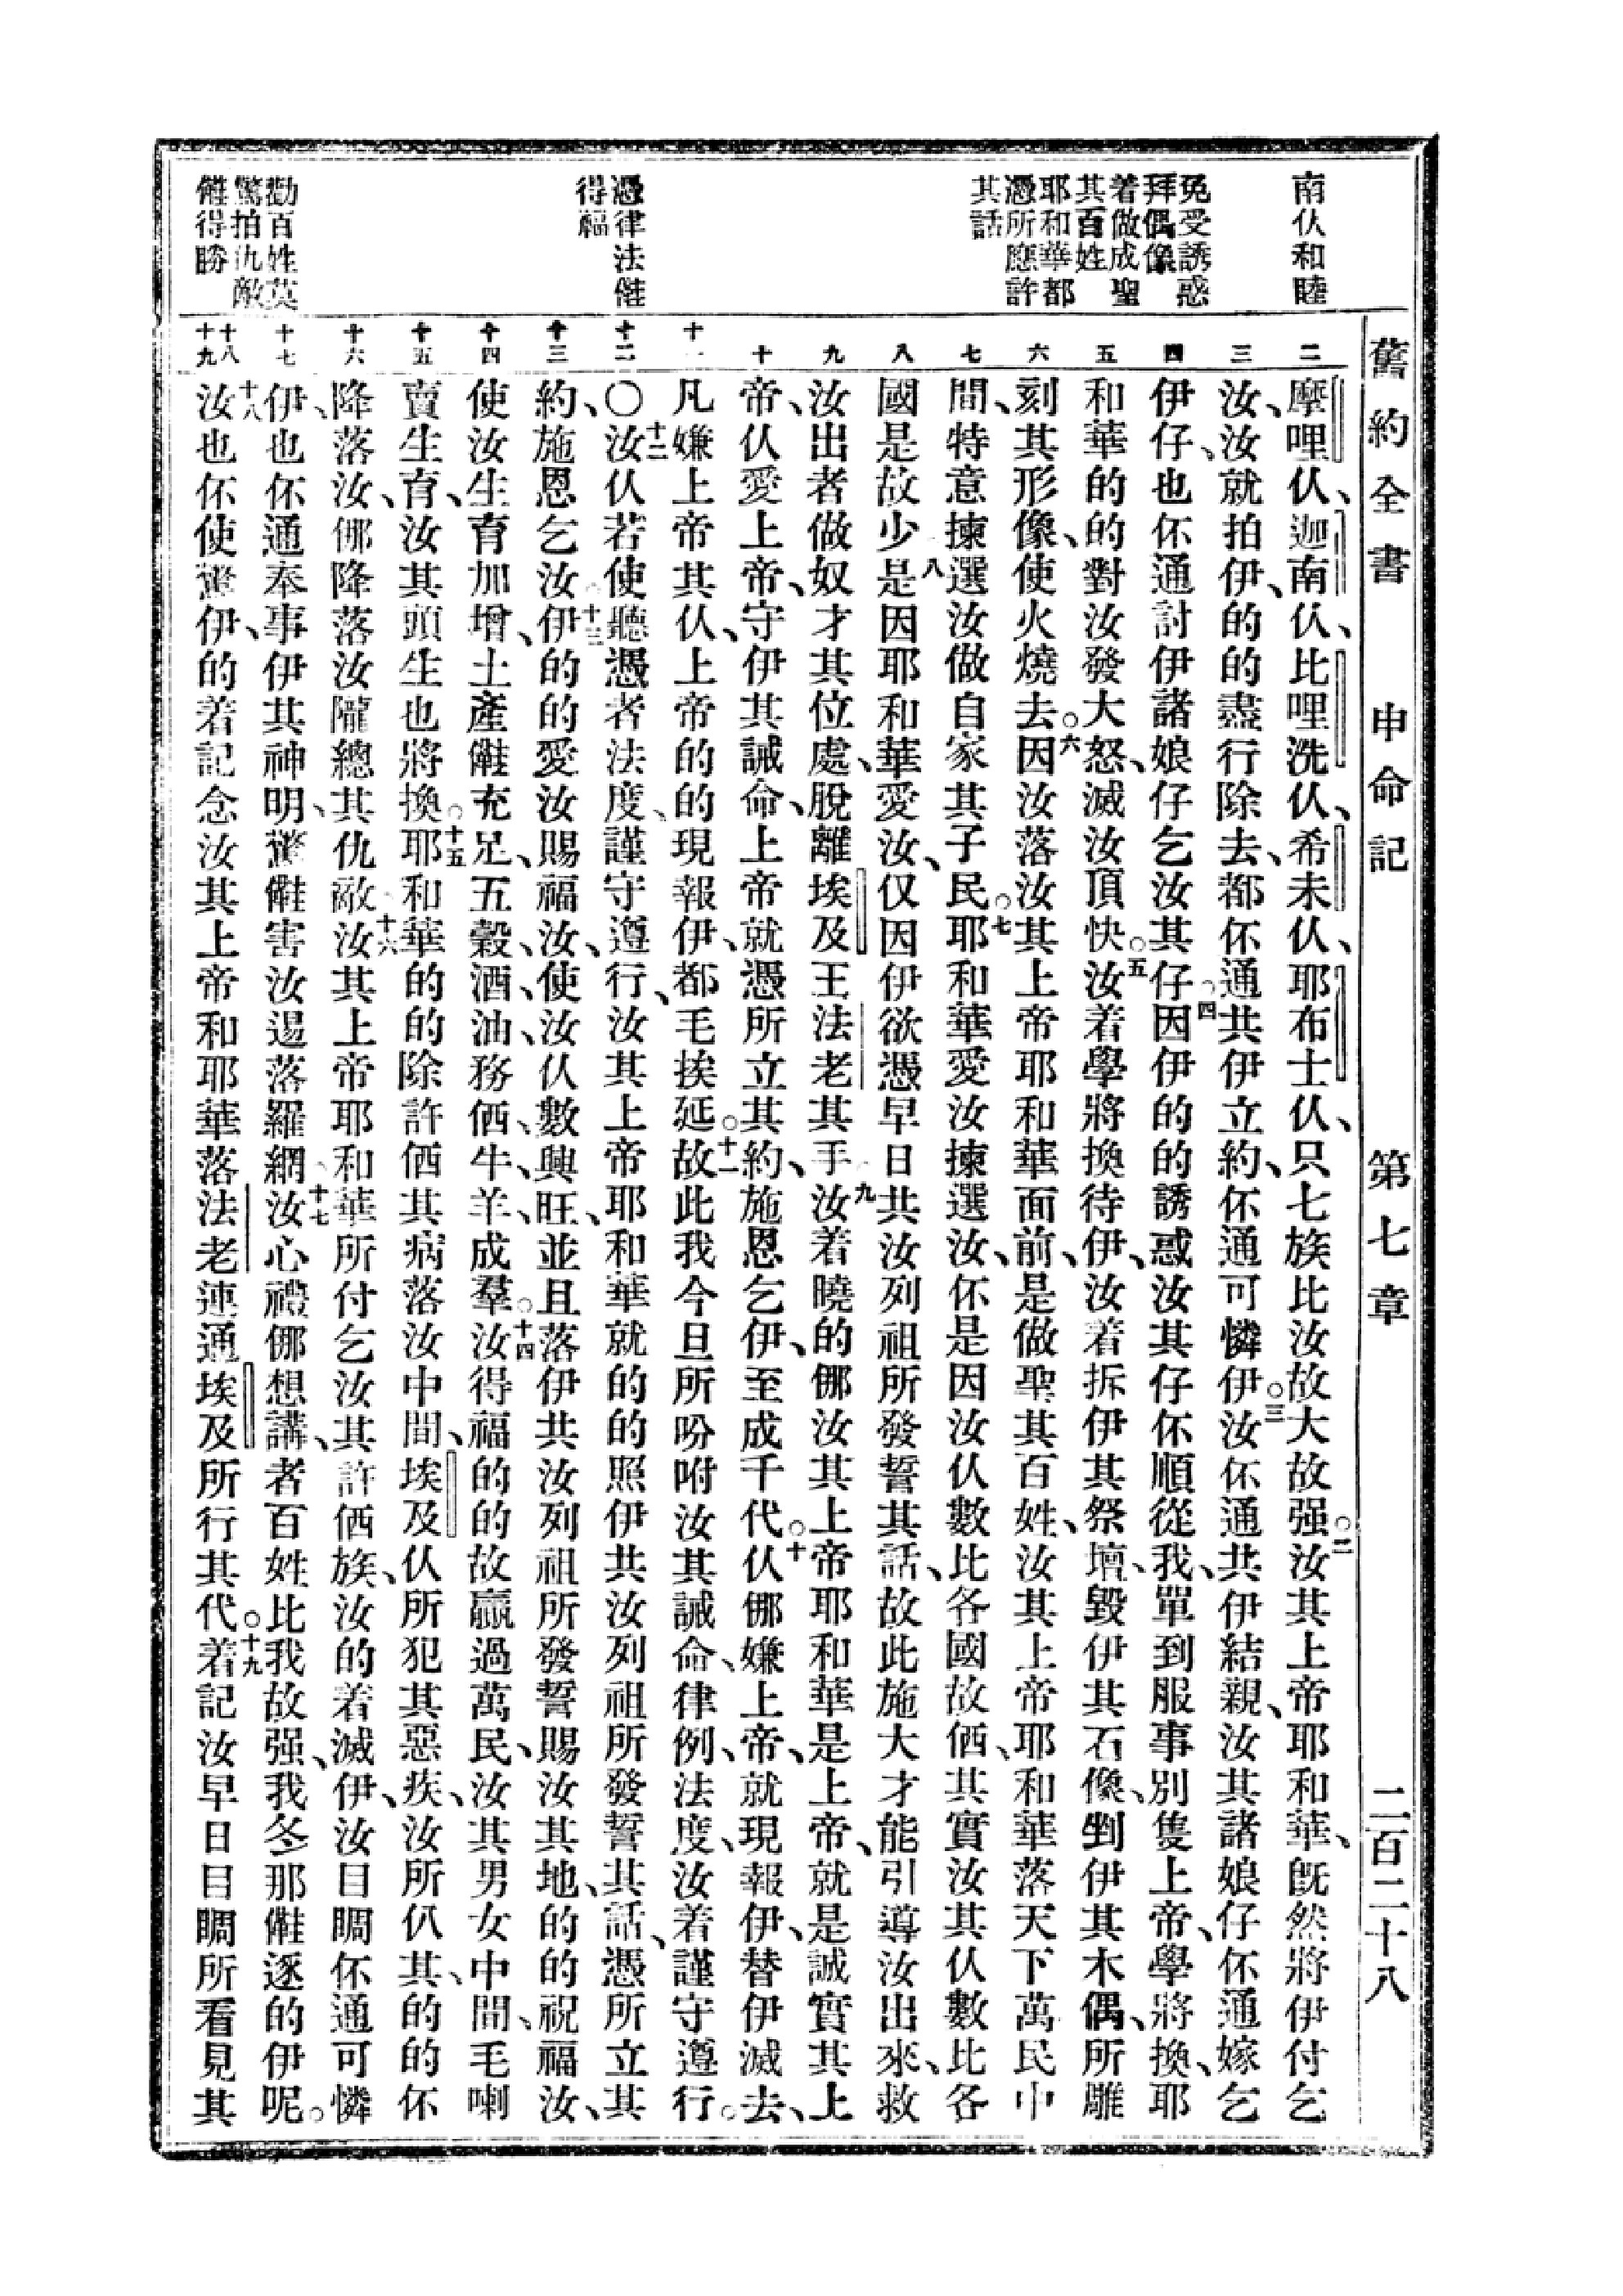 舊約全書　申命記　第七章　二百二十八
南仸和睦
免受誘惑
拜偶像
着做成聖
其百姓
耶和華都
憑所應許
其話
憑律法𣍐
得福
勸百姓莫
驚拍仇敵
得勝
二
三
四
五
六
七
八
九
十
十一
十二
十三
十四
十五
十六
十七
十八
十九
摩哩仸、迦南仸、比哩洗仸、希未仸、耶布士仸、只七族比汝故大故强。二汝其上帝耶和華、既然將伊付乞
汝、汝就拍伊、的的盡行除去、都伓通共伊立約、伓通可憐伊。三汝伓通共伊結親、汝其諸娘仔伓通嫁乞
伊仔、也伓通討伊諸娘仔乞汝其仔。四因伊的的誘惑汝其仔伓順從我、單到服事別隻上帝、學將換、耶
和華的的對汝發大怒、滅汝頂快。五汝着學將換待伊、汝着拆伊其祭壇、毀伊其石像、剉伊其木偶、所雕
刻其形像、使火燒去。六因汝落汝其上帝耶和華面前、是做聖其百姓、汝其上帝耶和華落天下萬民中
間、特意揀選汝做自家其子民。七耶和華愛汝揀選汝、伓是因汝仸數比各國故𠍲、其實汝其仸數比各
國是故少、八是因耶和華愛汝、仅因伊欲憑早日共汝列祖所發誓其話、故此施大才能引導汝出來、救
汝出者做奴才其位處、脫離埃及王法老其手。九汝着曉的𨚗汝其上帝耶和華是上帝、就是誠實其上
帝、仸愛上帝、守伊其誡命、上帝就憑所立其約、施恩乞伊、至成千代。十仸𨚗嫌上帝、就現報伊、替伊滅去、
凡嫌上帝其仸、上帝的的現報伊、都毛挨延。十一故此我今旦所吩咐汝其誡命、律例、法度、汝着謹守遵行。
○十二汝仸若使聽憑者法度、謹守遵行、汝其上帝耶和華就的的照伊共汝列祖所發誓其話、憑所立其
約、施恩乞汝、十三伊的的愛汝賜福汝、使汝仸數興旺、並且落伊共汝列祖所發誓賜汝其地、的的祝福汝、
使汝生育加增、土產𠍲充足、五穀、酒、油、務𠍲、牛、羊、成羣。十四汝得福、的的故贏過萬民、汝其男女中間、毛喇
賣生育、汝其頭生也將換。十五耶和華的的除許𠍲其病落汝中間、埃及仸所犯其惡疾、汝所仈其、的的伓
降落汝、𨚗降落汝隴總其仇敵。十六汝其上帝耶和華所付乞汝其許𠍲族、汝的着滅伊、汝目睭伓通可憐
伊、也伓通奉事伊其神明、驚𠍲害汝逿落羅網。十七汝心禮𨚗想講、者百姓比我故强、我冬那𠍲逐的伊呢。
十八汝也伓使驚伊、的着記念汝其上帝和耶華落法老連通埃及所行其代。十九着記汝早日目睭所看見其